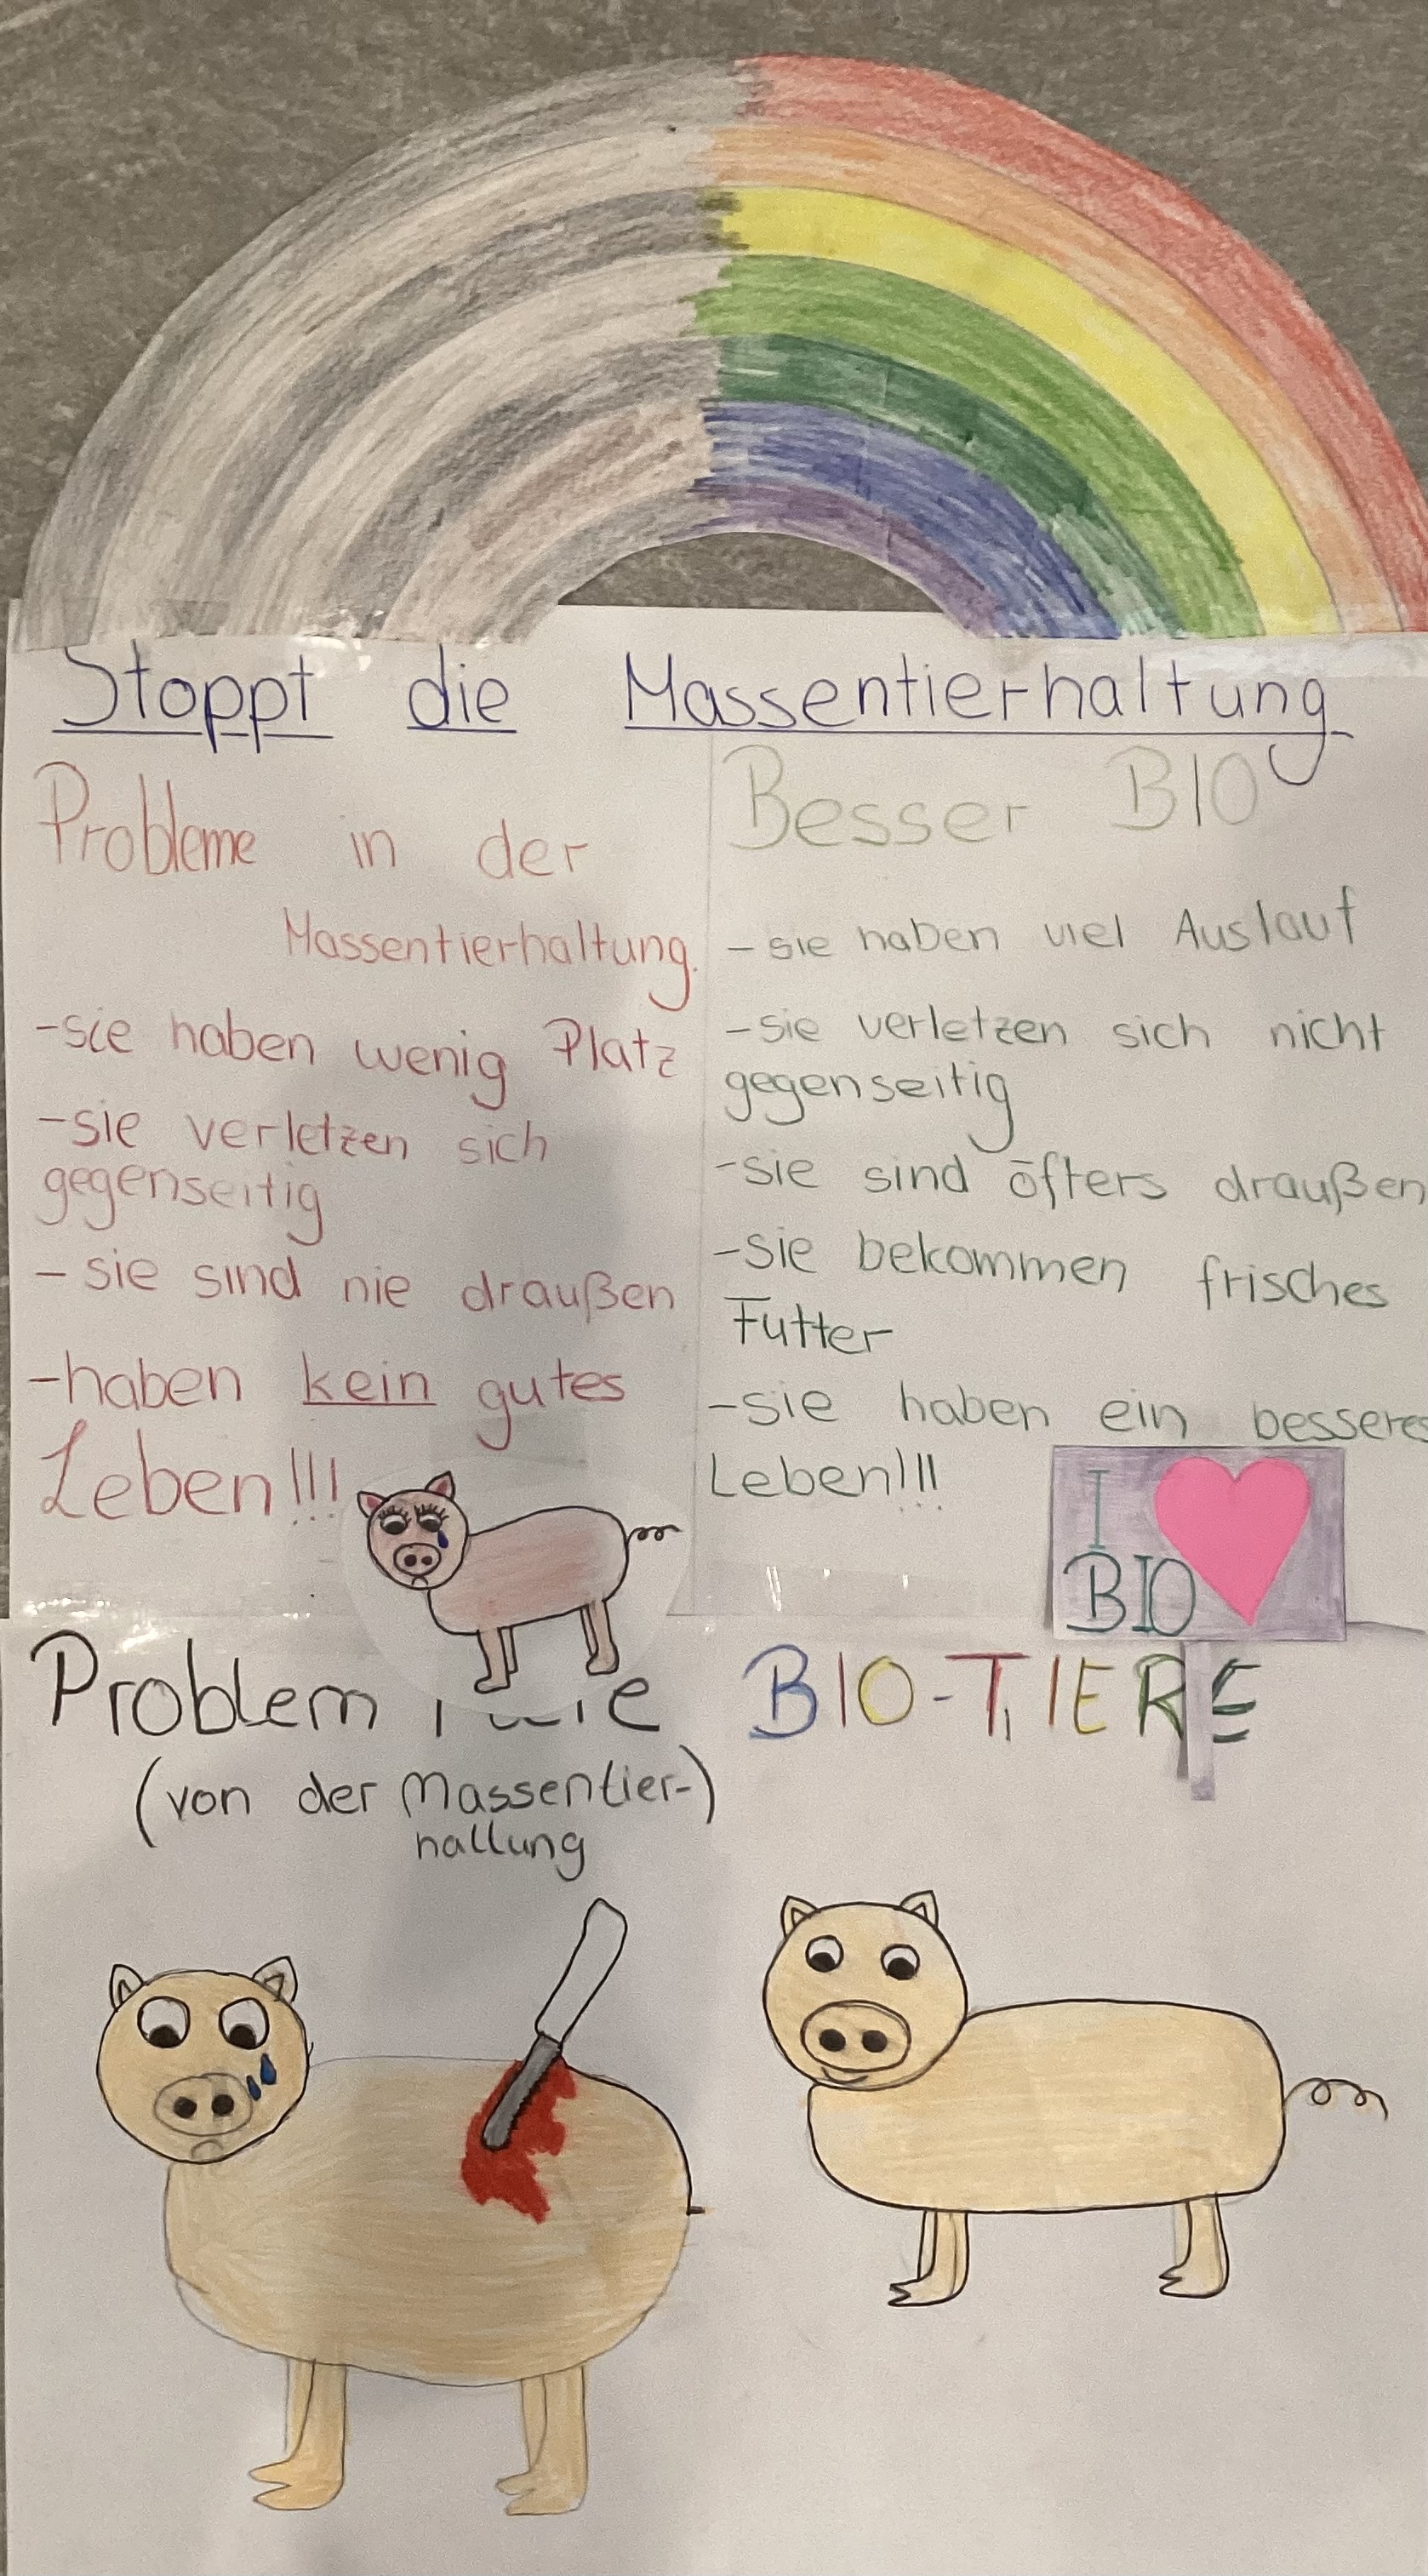 Stoppt die Massentierhaltung
Probleme in der
Massentierhaltung.
-sie haben wenig Platz
-sie verletzen sich
gegenseitig
- sie sind nie draußen
-haben kein gutes
Leben!!!
Besser BIO
- sie haben viel Auslauf
-sie verletzen sich nicht
gegenseitig
-sie sind öfters draußen
-sie bekommen frisches
Futter
-sie haben ein besseres
Leben!!!
I
BIO
Problem
(von der Massentier-)
haltung
BIO-TIERE